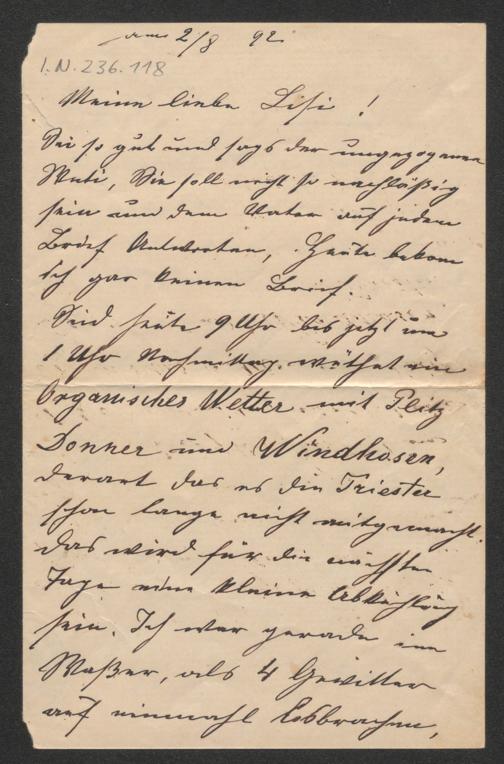 am 2/8 92.
I.N. 236.118
Meine liebe Lisi!
Sei so gut und sags der ungezogenen
Muti, Sie soll nicht so nachläßig
sein und dem Vater auf jedem
Brief Antworten, Heute bekam
ich gar keinen Brief.
Seid heute 9 Uhr bis jetzt um
1 Uhr Nachmittag wüthet ein
Organisches Wetter mit Plitz
Donner und Windhosen,
derart das es die Triester
schon lange nicht mitgemacht.
das wird für die nächsten
Tage eine kleine Abkühlung
sein. Ich war gerade im
Waßer, als 4 Gewitter
auf einmahl losbrachen,